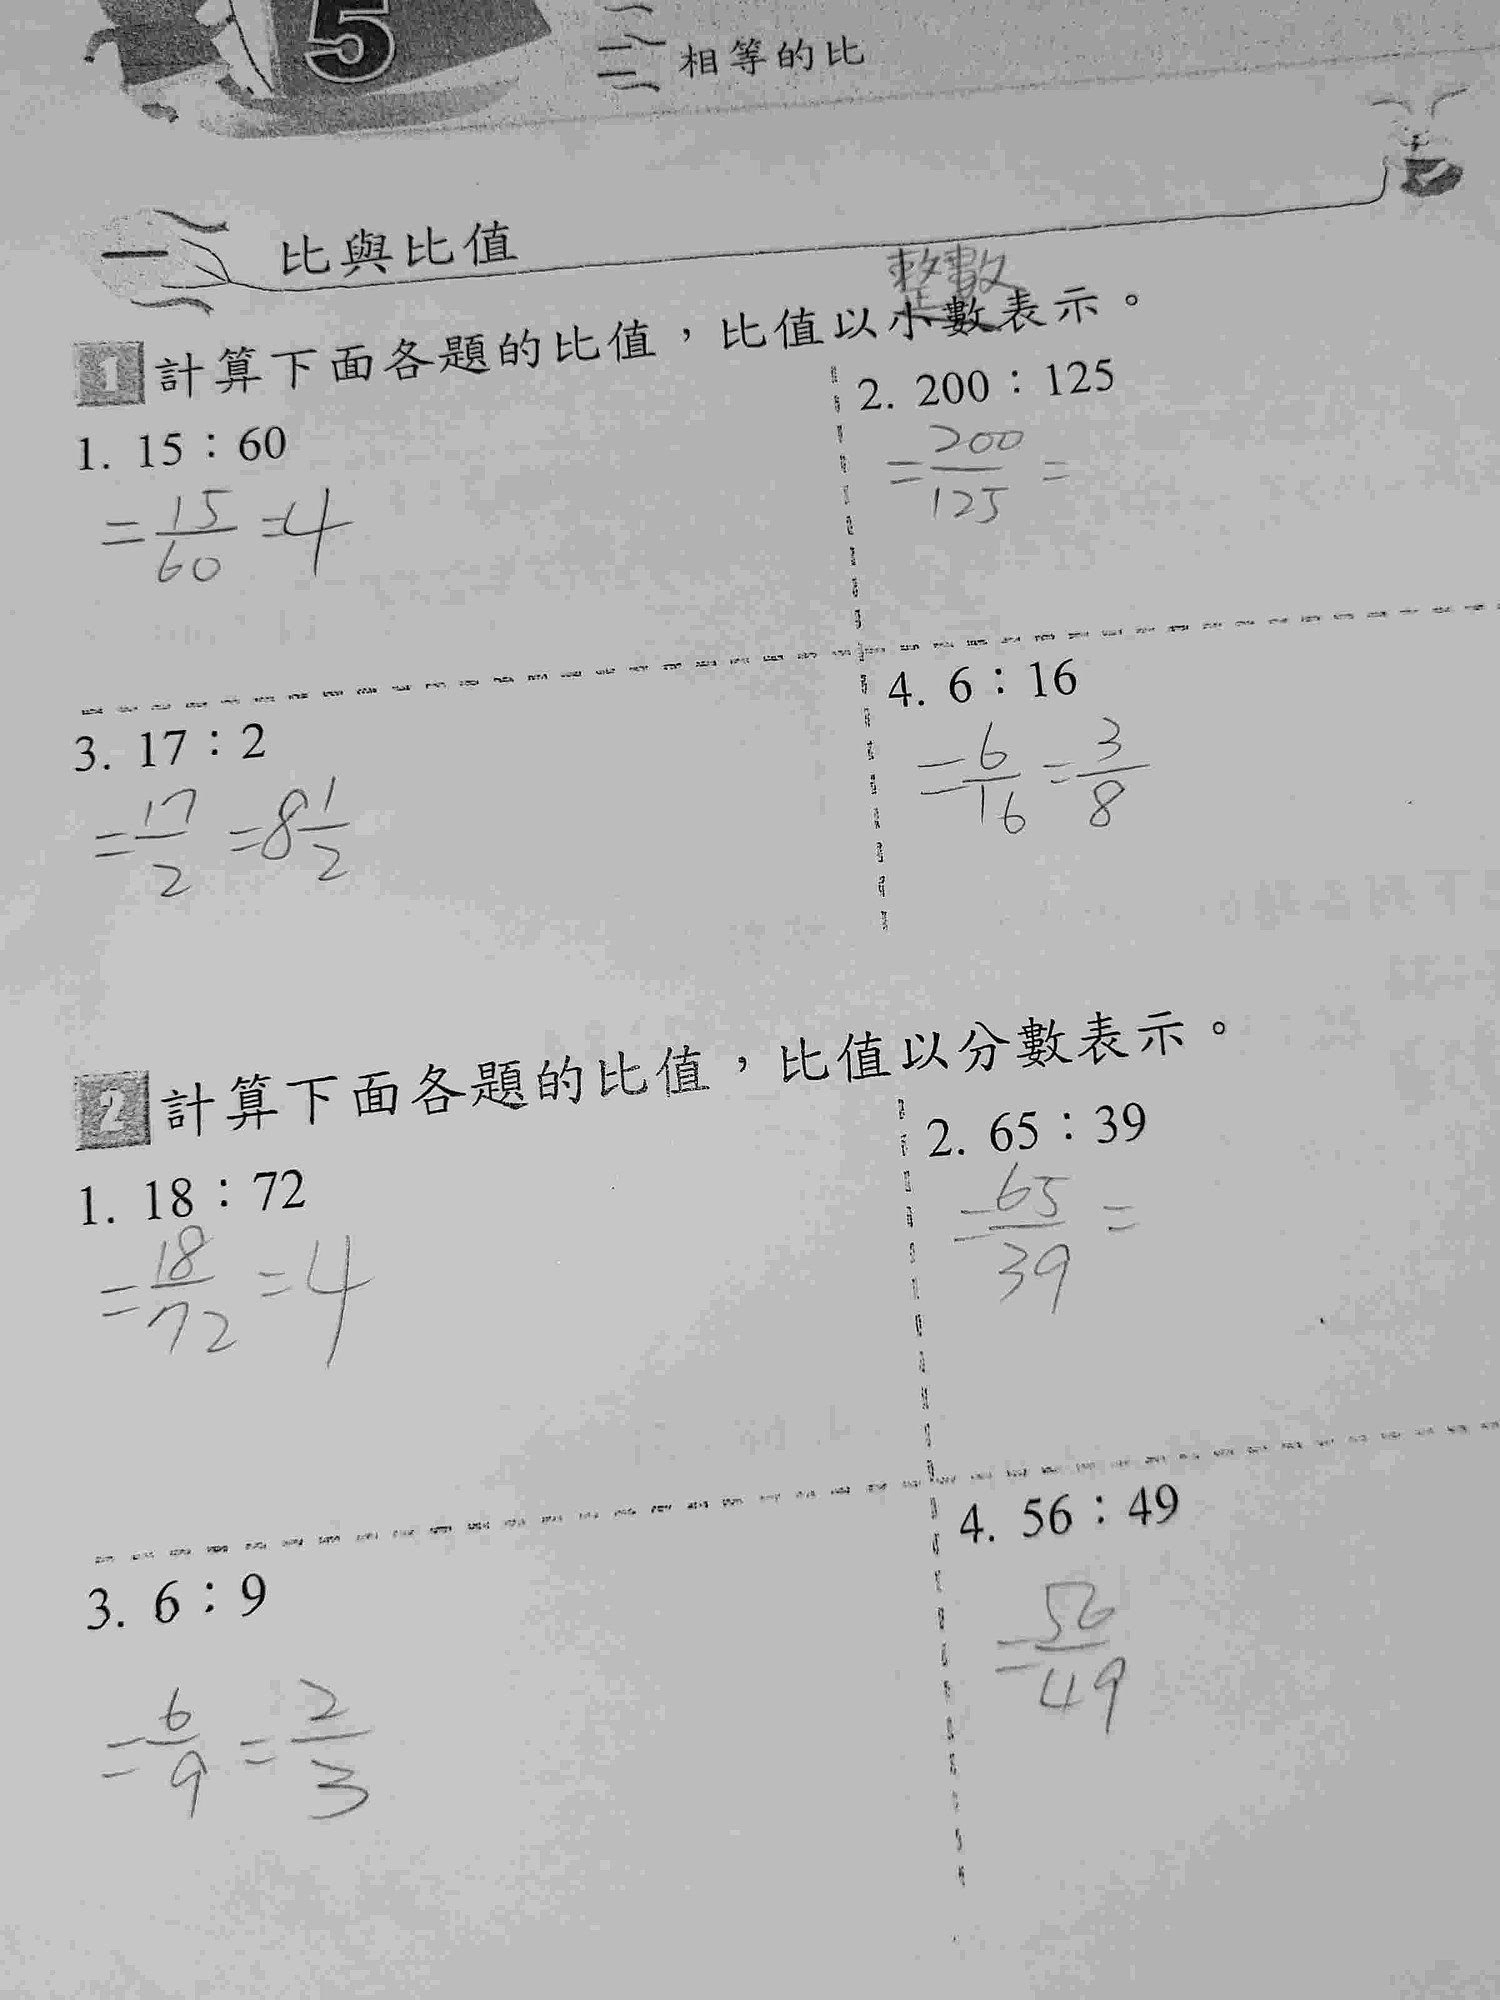 5
二 相等的比
一 比與比值
整數
1 計算下面各題的比值，比值以小數表示。
1. 15：60
= 15/60 = 4
2. 200：125
= 200/125 =
3. 17：2
= 17/2 = 8 1/2
4. 6：16
= 6/16 = 3/8
2 計算下面各題的比值，比值以分數表示。
1. 18：72
= 18/72 = 4
2. 65：39
= 65/39 =
3. 6：9
= 6/9 = 2/3
4. 56：49
= 56/49